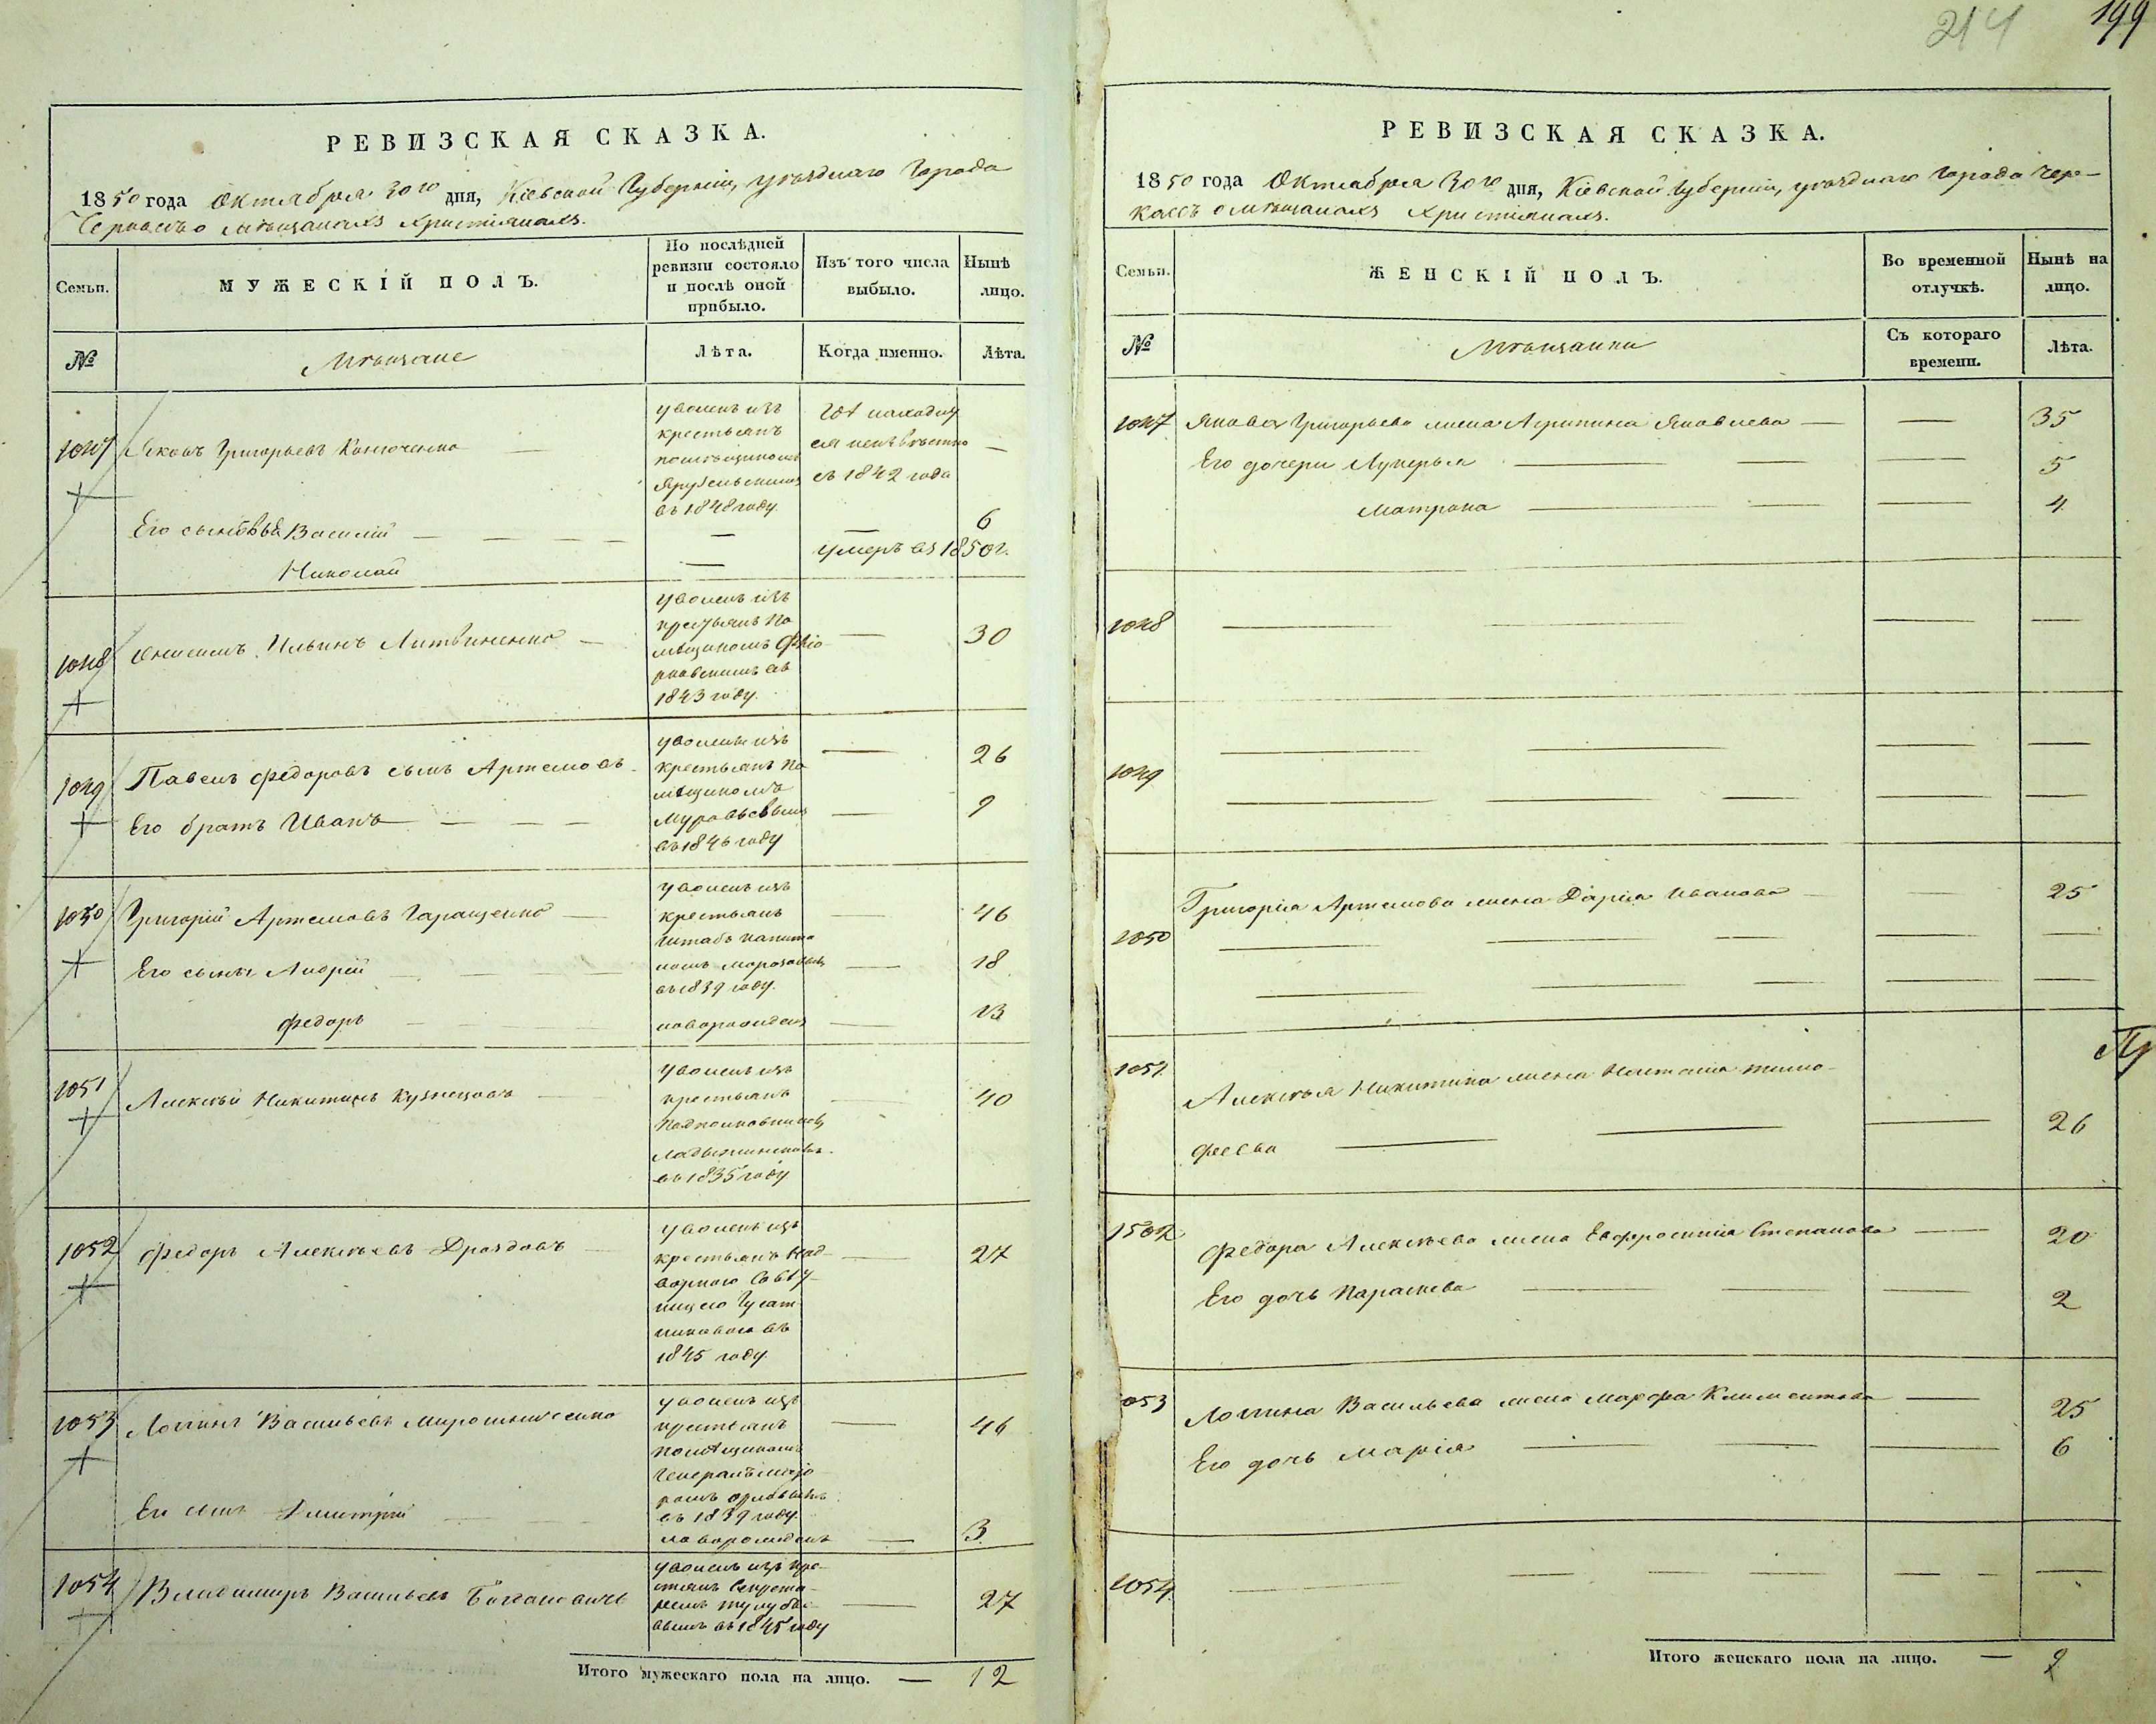 214
199
РЕВИЗСКАЯ СКАЗКА.
1850 года Октября 30го дня, Кіевской Губерніи, уѣзднаго Города
Черкасъ о мѣщанахъ Христіянахъ.
Семьи.
МУЖЕСКІЙ ПОЛЪ.
По послѣдней
ревизіи состояло
и послѣ оной
прибыло.
Изъ того числа
выбыло.
Нынѣ
лицо.
№
Мѣщане
Лѣта.
Когда именно.
Лѣта.
1047
Яковъ Григорьевъ
уволенъ изъ
крестьянъ
помѣщикомъ
въ 1848 году
неизвѣстно
съ 1842 года
—
Его сыновья Василій
—
—
6
Николай
—
умеръ въ 1850 г.
1048
Онисимъ Ильинъ Литвиненко
уволенъ изъ
крестьянъ по
мѣщикомъ
въ
1843 году.
—
30
1049
Павелъ Федоровъ сынъ Артемовъ
уволены изъ
крестьянъ по
мѣщикомъ
Муравьевымъ
въ 1846 году
—
26
Его братъ Иванъ
—
9
1050
Григорій Артемовъ Гаращенко
уволенъ изъ
крестьянъ
штабъ капита
номъ Морозовымъ
въ 1839 году.
46
Его сыны Андрей
—
18
Федоръ
новорожденъ
—
13
1051
Алексѣй Никитинъ Кузнецовъ
уволенъ изъ
крестьянъ
въ 1835 году
—
40
1052
Федоръ Алексѣевъ Дроздовъ
уволенъ изъ
крестьянъ Над-
ворною Совѣт-
ницею Гусят
никовою въ
1845 году
—
27
1053
Логинъ Васильевъ Мирошниченко
уволенъ изъ
крестьянъ
помѣщикомъ
Генералъ маіо
ромъ Орловымъ
въ 1839 году.
—
46
Его сынъ Дмитрій
новорожденъ
—
3
1054
Владимиръ Васильевъ Богдановичъ
уволенъ изъ кре-
стьянъ Секрета-
ремъ
въ 1845 году
—
27
Итого мужескаго пола на лицо. — 12
РЕВИЗСКАЯ СКАЗКА.
1850 года Октября 30го дня, Кіевской Губерніи, уѣзднаго Города Чер-
касъ о мѣщанахъ Христіянахъ.
Семьи.
ЖЕНСКІЙ ПОЛЪ.
Во временной
отлучкѣ.
Нынѣ на
лицо.
№
Мѣщанки
Съ котораго
времени.
Лѣта.
1047 Якова Григорьева жена Агрипина Яковлева — — 35
Его дочери Лукерья — — — 5
Матрона — — — 4
1048 — — — —
1049 — — — —
— — — — —
1050
Григорія Артемова жена Дарія Иванова — 25
— — — — —
— — — — —
1051
Алексѣя Никитина жена Наталія Тимо-
феева — — — 26
Пр
1502
Федора Алексѣева жена Евфросинія Степанова — 20
Его дочь Параскева — — — 2
053 Логина Васильева жена Марфа Климентова — 25
Его дочь Марія — — — 6
1054 — — — — — — —
Итого женскаго пола на лицо. — 9